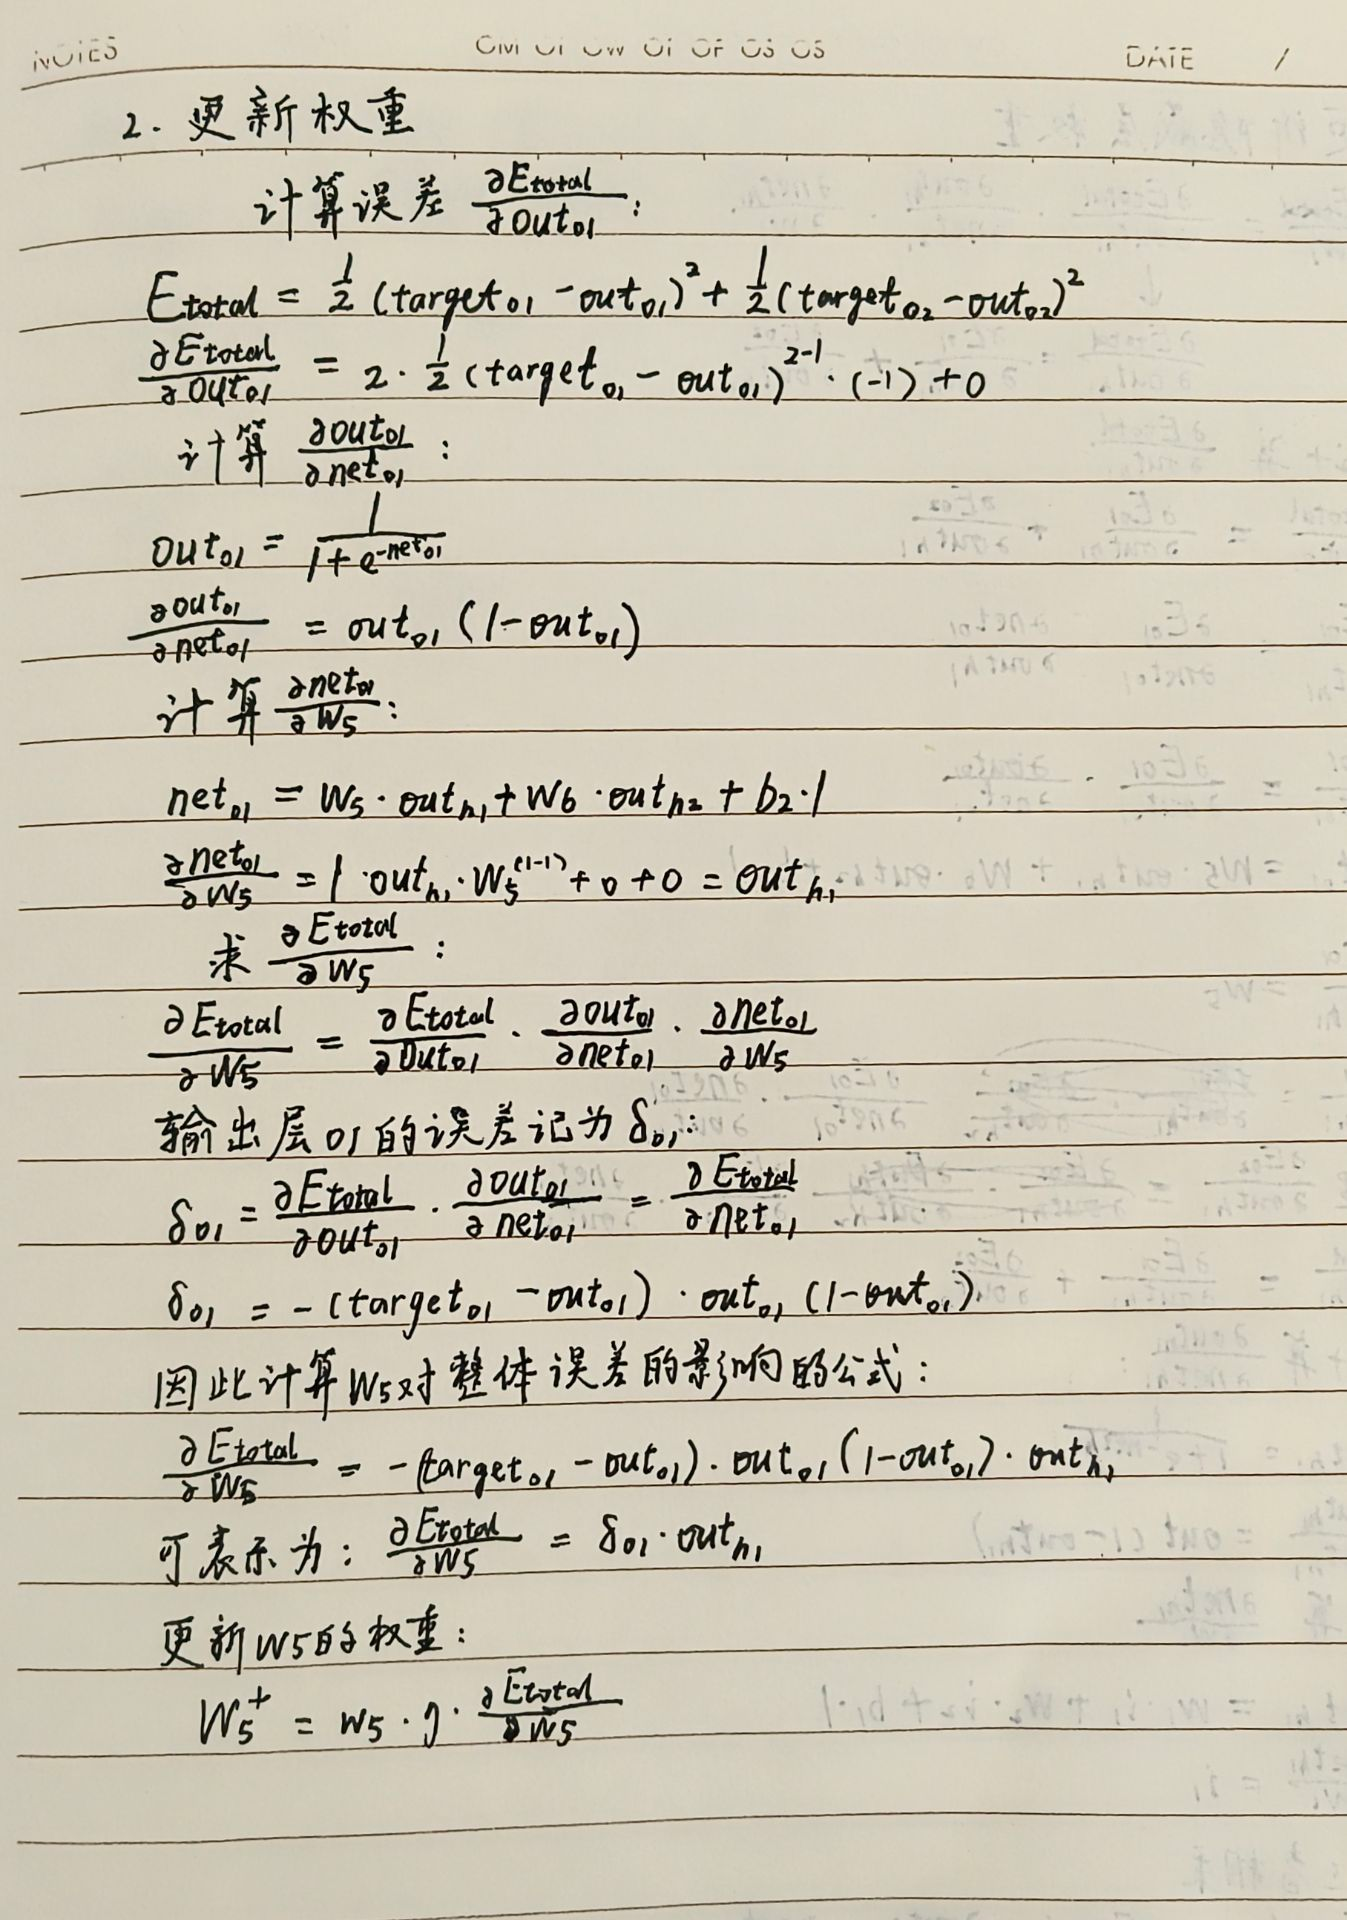 NOTES DATE /
2. 更新权重
计算误差 ∂Etotal/∂Out₀₁:
Etotal = 1/2 (target₀₁ - out₀₁)² + 1/2 (target₀₂ - out₀₂)²
∂Etotal/∂Out₀₁ = 2 · 1/2 (target₀₁ - out₀₁)²⁻¹ · (-1) + 0
计算 ∂out₀₁/∂net₀₁ :
out₀₁ = 1/(1 + e^(-net₀₁))
∂out₀₁/∂net₀₁ = out₀₁ (1 - out₀₁)
计算 ∂net₀₁/∂W₅ :
net₀₁ = W₅ · out_h₁ + W₆ · out_h₂ + b₂ · 1
∂net₀₁/∂W₅ = 1 · out_h₁ · W₅^(1-1) + 0 + 0 = out_h₁
求 ∂Etotal/∂W₅ :
∂Etotal/∂W₅ = ∂Etotal/∂Out₀₁ · ∂out₀₁/∂net₀₁ · ∂net₀₁/∂W₅
输出层01的误差记为 δ₀₁:
δ₀₁ = ∂Etotal/∂out₀₁ · ∂out₀₁/∂net₀₁ = ∂Etotal/∂net₀₁
δ₀₁ = -(target₀₁ - out₀₁) · out₀₁ (1 - out₀₁)
因此计算W₅对整体误差的影响的公式:
∂Etotal/∂W₅ = -(target₀₁ - out₀₁) · out₀₁ (1 - out₀₁) · out_h₁
可表示为: ∂Etotal/∂W₅ = δ₀₁ · out_h₁
更新W5的权重:
W₅⁺ = W₅ · η · ∂Etotal/∂W₅